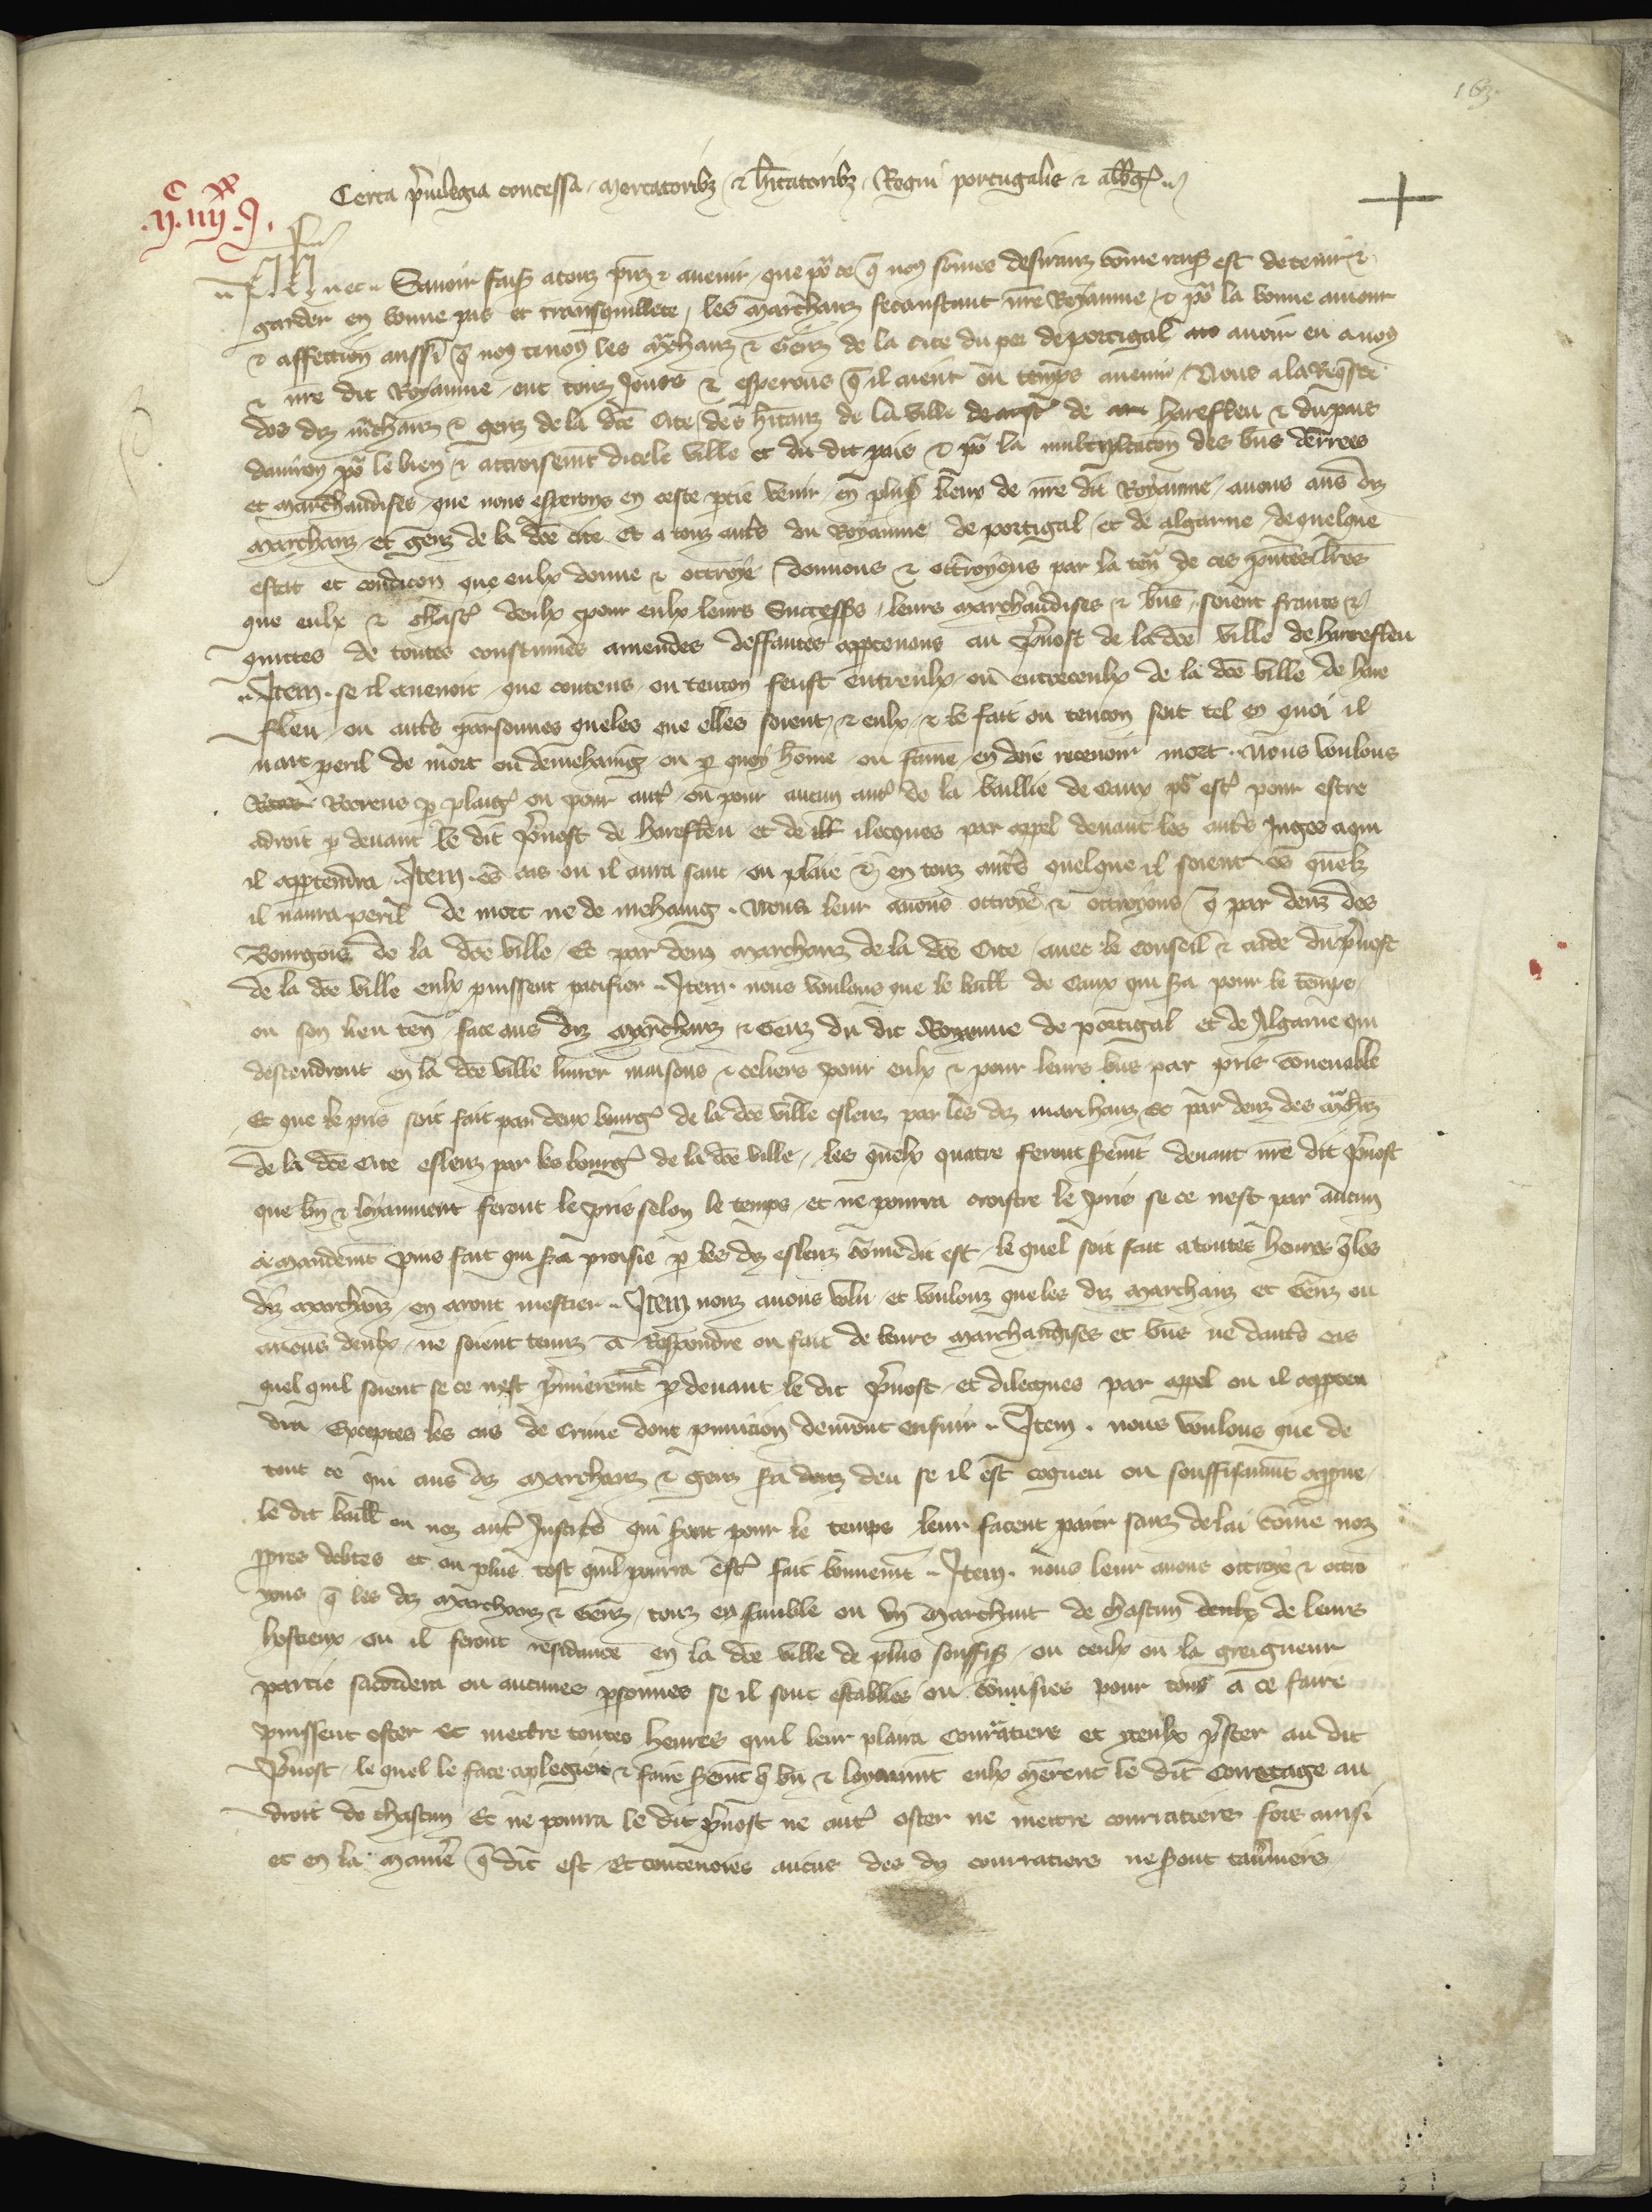 163.
Certa p'uilegia concessa mercatorib3 & h'itatorib3 Regni portugalie & alibi
.IIc.IIIIxx.I.
Ph etc. Sauoir fais' a touz p'nz & auenir que po' ce q' nous sommes desirranz comme raiso' est de tenir &
garder en bonne pais et transquillete les marcheanz frequentant n're Royaume & po' la bonne amour
& affection aussi q' nous tenons les m'chanz & Genz de la cite du port de portigal auoir eu a nous
& n're dit Royaume ont touz Jours & esperons q' il aient ou temps auenir Nous a la Req'ste
des dz m'chanz & genz de la d'ce Cite des h'itanz de la ville de harefleu & du pais
denuiron po' le bien & accroissem't dicele ville et du dit pais & po' la multiplicacon des b'ns denrrees
et marchandises que nous esperons en ceste p'tie venir en plus' lieux de n're dit Royaume auons aus dz
marchanz et genz de la d'ce cite Et a touz aut's du Royaume de portigal et de algarue de quelque
estat et condicon que eulx donne & ottroye donnons & ottroyons par la ten' de ces p'ntes l'res
que eulx & chasc' deulx pour eulx leurs Success's leurs marchandises & b'ns soient francs &
quittes de toutes coustumes amendes deffautes appartenans au p'uost de la d'ce ville de harefleu
Item se il auenoit que contens ou tencon feust entreulx ou entre ceulx de la d'ce ville de hare
fleu ou aut's personnes queles que elles soient & eulx & le fait ou tencon soit tel en quoi il
nait peril de mort ou de mehaing ou p quoy home ou fame en doie receuoir mort. Nous voulons
Recreus p plaige ou pour aut' ou pour aucun aut' de la baillie de Caux po' est' pour estre
adroit p deuant le dit p'uost de harefleu et de ilecques par appel deuant les aut's Juges a qui
il appartendra. Item es cas ou il aura sanc ou plaie & en touz aut's quelque il soient es quelz
il naura peril de mort ne de mehaing. Nous leur auons ottroye & ottroyons q' par deuz des
Bourgois de la d'ce ville Et par deuz marchanz de la d'ce Cite auec le conseil & aide du p'uost
de la d'ce ville eulx puissent pacifier. Item nous voulons que le baill' de Caux qui s'a pour le temps
ou son lieu ten' face aus dz marchanz & Genz du dit Royaume de portigal et de Algarue qui
descendront en la d'ce ville liurer maisons & celiers pour eulx & pour leurs b'ns par pris conuenable
Et que le pris soit fait par deux bourg' de la d'ce ville esleuz par les dz marchanz Et par deuz des m'chanz
de la d'ce Cite esleuz par les bourg' de la d'ce ville les quelx quatre feront s'em't deuant n're dit p'uost
que b'n & loyaument feront le pris selon le temps et ne pourra acroistre le pris se ce nest par aucun
amandem't puis fait qui s'a proisie p les dz esleuz comme dit est le quel soit fait a toutes heures q' les
dz marchanz en aront mestier. Item nouz auons volu et voulonz que les dz marchanz et Genz ou
aucuns deulx ne soient tenuz a Respondre ou fait de leurs marchandises et b'ns ne daut's cas
quel quil soient se ce nest p'mierem't p deuant le dit p'uost et dilecques par appel ou il apparten
dra Exceptes les cas de Crime dont punicion deuront ensuir. Item. nous voulons que de
tout ce qui aus dz marchanz & genz s'a deu se il est cogneu ou souffisaum't approue
le dit baill' ou noz aut' Justices qui s'ont pour le temps leur facent paier sanz delai comme noz
p'pres debtes et au plus tost quil pourra est' fait bonnem't. Item. nous leur auons ottroye & ottro
yons q' les dz marchanz & Genz touz ensamble ou un marchant de chascun de leurs
hostieux ou il feront residance en la d'ce ville de plus souffis' ou ceulx ou la greigneur
partie sacordera ou aucunes p'sonnes se il sont establies ou commises pour tous a ce faire
puissent oster et mettre toutes heures quil leur plaira Courratiers et yceulx p'senter au dit
p'uost le quel le face aplegier & faire s'em't q' b'n & loyaum't eulx menrent le dit Courratage au
droit de chascun Et ne pourra le dit p'uost ne aut' oster ne mettre courratiers fors ainsi
et en la maniere q' dit est Et toutesuoies aucuns des dz courratiers ne s'ont tauerniers